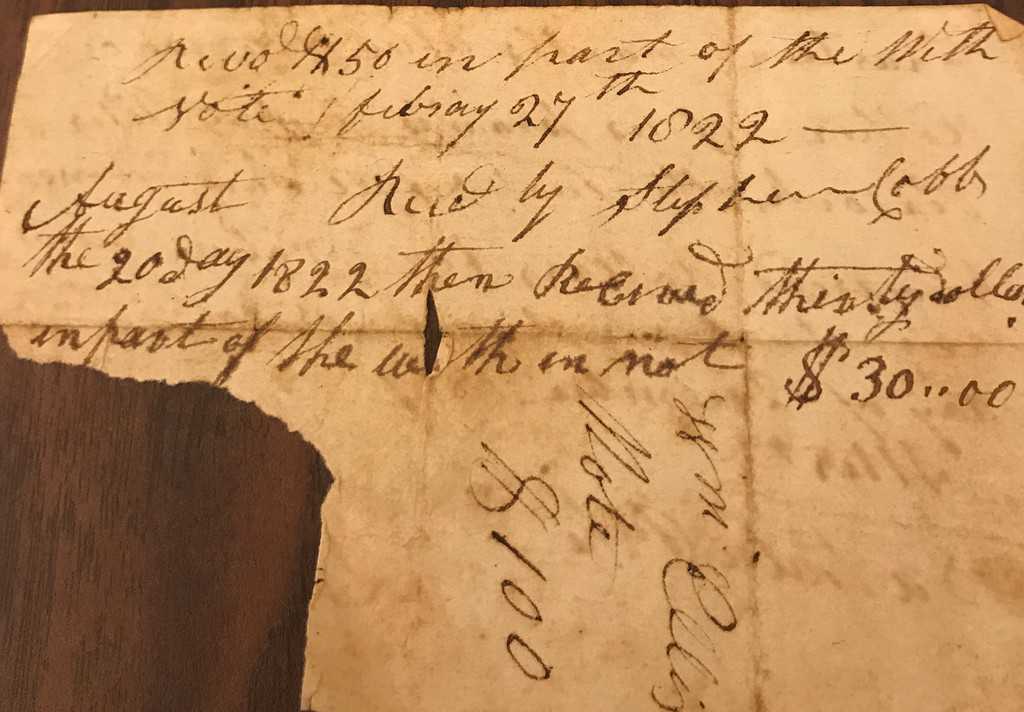 Recvd $50 in part of the With
Note febray 27th 1822 —
August Recd by Stephen Cobb
the 20 day 1822 then Receved thirty dollars
in part of the with in not $30..00
Wm Ellis
Note
$100